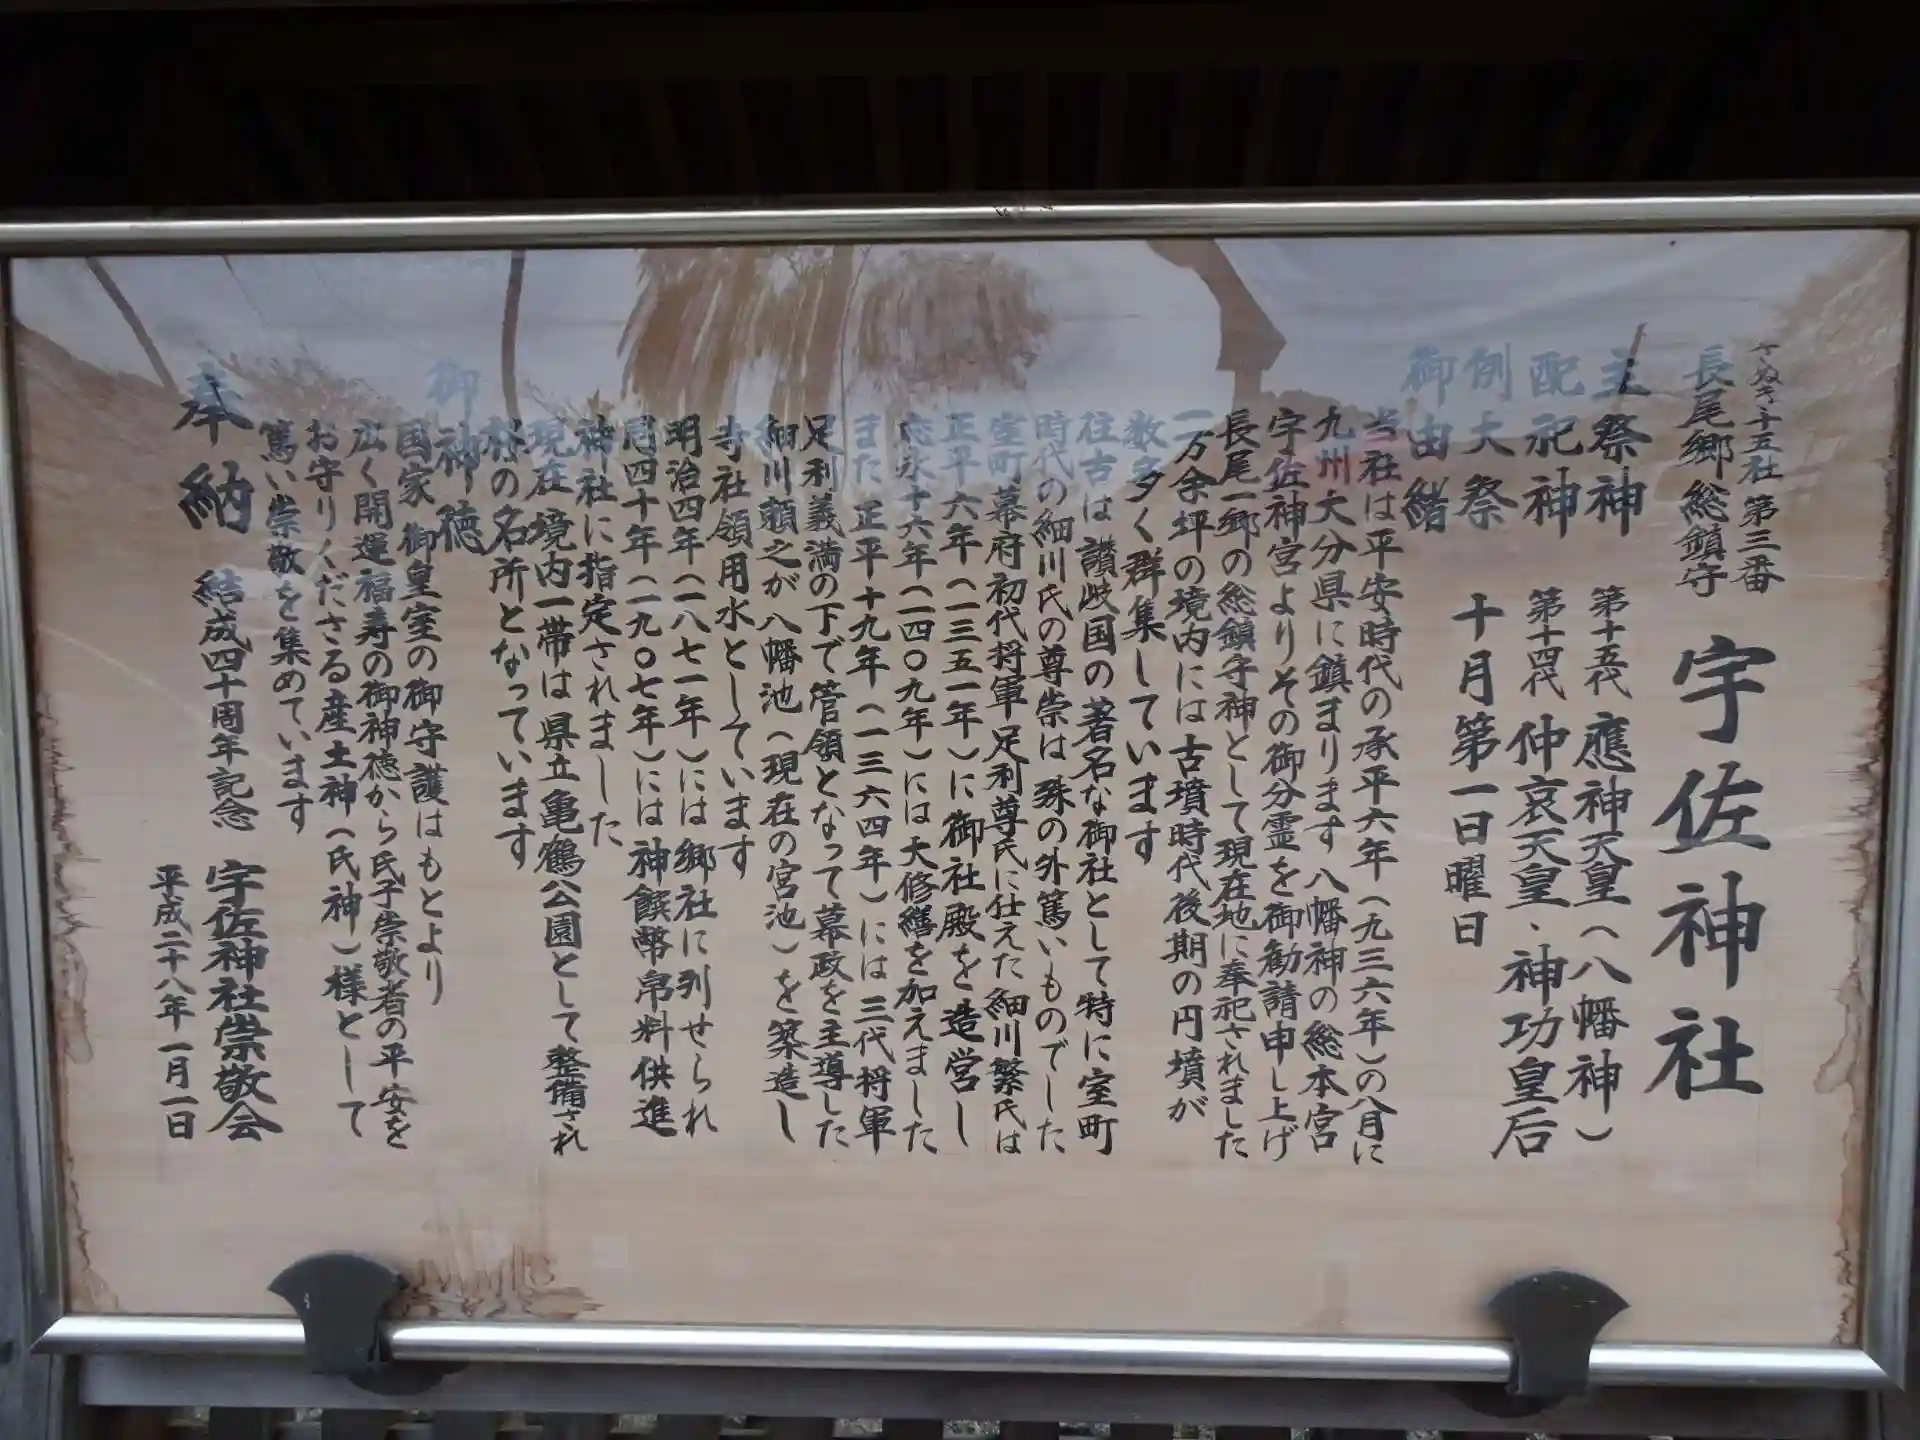 さぬき十五社 第三番
長尾郷総鎮守
宇佐神社
主祭神 第十五代 應神天皇(八幡神)
配祀神 第十四代 仲哀天皇、神功皇后
例大祭 十月第一日曜日
御由緒
当社は平安時代の承平六年(九三六年)の八月に
九州大分県に鎮まります八幡神の総本宮
宇佐神宮よりその御分霊を御勧請申し上げ
長尾一郷の総鎮守神として現在地に奉祀されました
一万余坪の境内には古墳時代後期の円墳が
数多く群集しています
往古は讃岐国の著名な御社として特に室町
時代の細川氏の尊崇は殊の外篤いものでした
室町幕府初代将軍足利尊氏に仕えた細川繁氏は
正平六年(一三五一年)に御社殿を造営し
応永十六年(一四〇九年)には大修繕を加えました
また正平十九年(一三六四年)には三代将軍
足利義満の下で管領となって幕政を主導した
細川頼之が八幡池(現在の宮池)を築造し
寺社領用水としています
明治四年(一八七一年)には郷社に列せられ
同四十年(一九〇七年)には神饌幣帛料供進
神社に指定されました
現在境内一帯は県立亀鶴公園として整備され
桜の名所となっています
御神徳
国家御皇室の御守護はもとより
広く開運福寿の御神徳から氏子崇敬者の平安を
お守りくださる産土神(氏神)様として
篤い崇敬を集めています
奉納 結成四十周年記念 宇佐神社崇敬会
平成二十八年一月一日